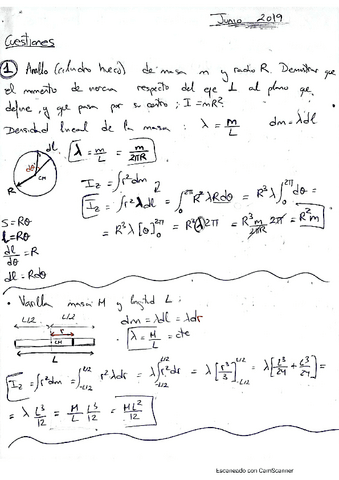 Junio 2019
Cuestiones
1 Anillo (cilindro hueco) de masa m y radio R. Demostrar que
el momento de inercia respecto del eje ⊥ al plano que
define, y que pasa por su centro, : I = mR²
Densidad lineal de la masa : λ = m/L dm = λdl
λ = m/L = m/2πR
dl
dθ
R
CM
I_z = ∫r²dm
I_z = ∫r²λdl = ∫₀^2π R²λRdθ = R³λ∫₀^2π dθ =
= R³λ[θ]₀^2π = R³λ2π = R³ m/2πR 2π = R²m
S = Rθ
L = Rθ
dl/dθ = R
dl = Rdθ
• Varilla masa M y longitud L :
L/2 L/2
r
CM
L
dm = λdl = λdr
λ = M/L = cte
I_z = ∫r²dm = ∫_-L/2^L/2 r²λdr = λ∫_-L/2^L/2 r²dr = λ[r³/3]_-L/2^L/2 = λ[L³/24 + L³/24] =
= λ L³/12 = M/L L³/12 = ML²/12
Escaneado con CamScanner